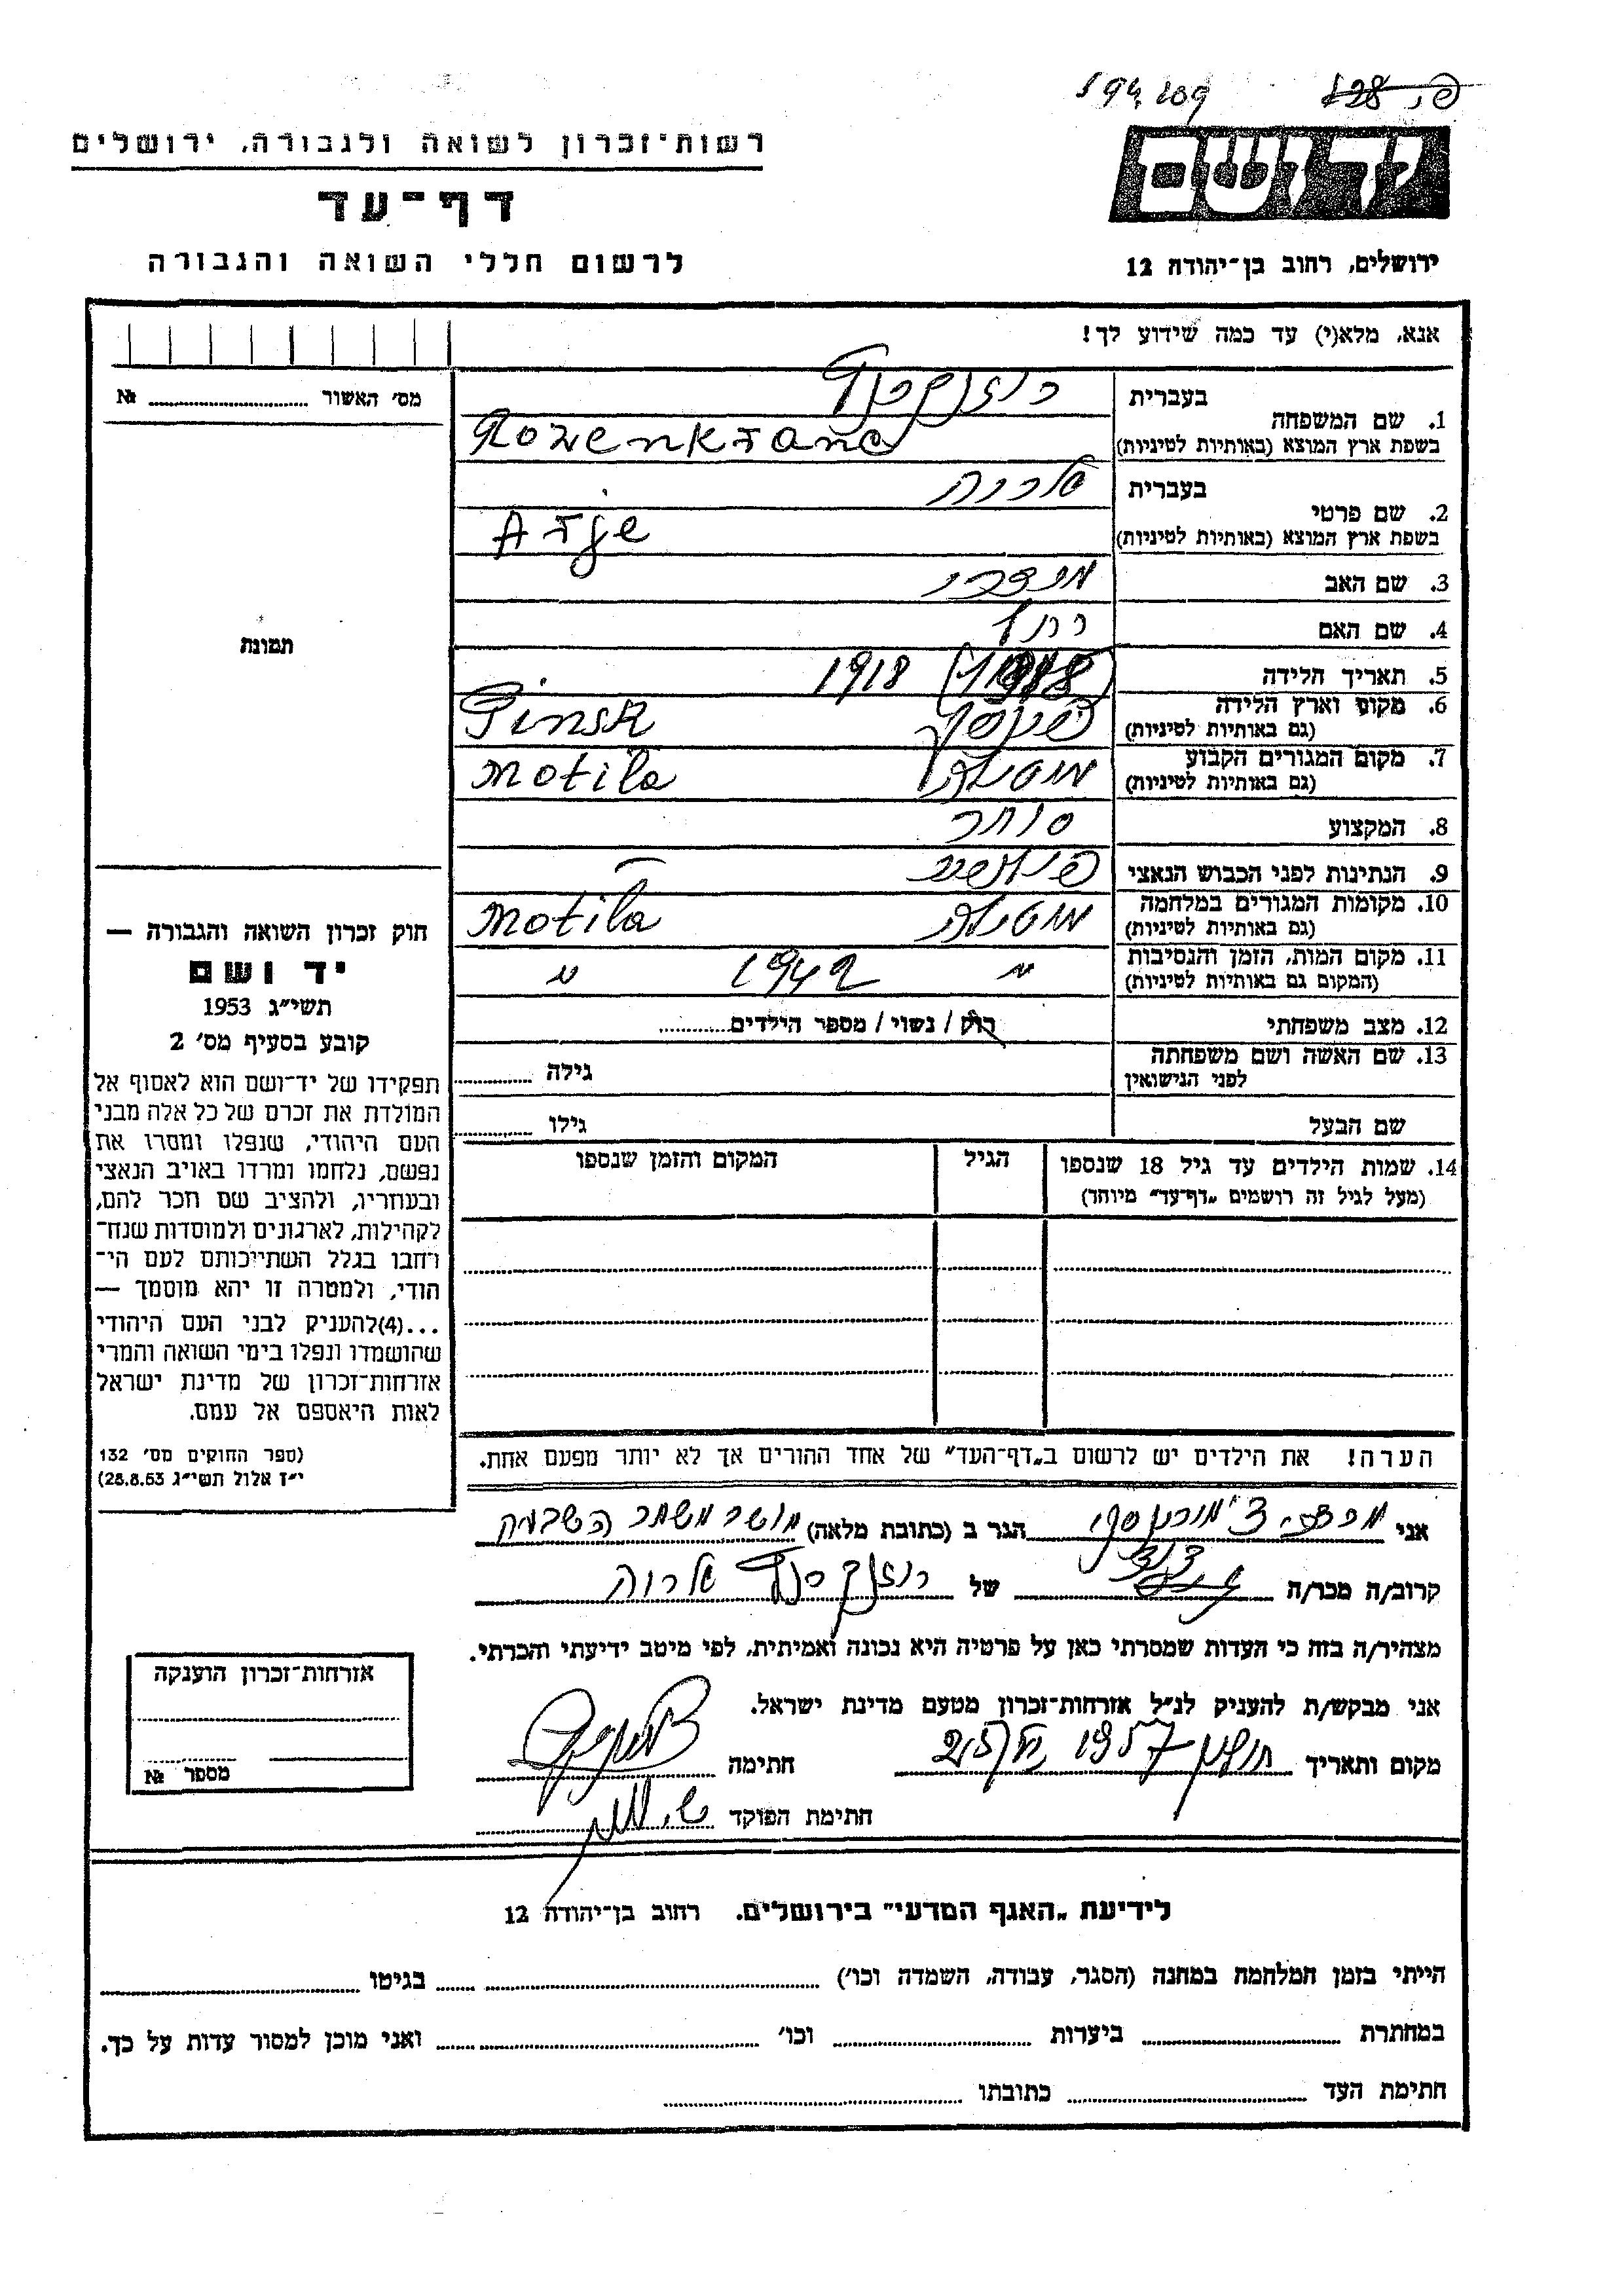 594,109
רשות־זכרון לשואה ולגבורה, ירושלים
יד ושם
דף־עד
לרשום חללי השואה והגבורה
ירושלים, רחוב בן־יהודה 12
אנא, מלא(י) עד כמה שידוע לך!
מס׳ האשור № 
1. שם המשפחה
בעברית
רוזנקרנץ
בשפת ארץ המוצא (באותיות לטיניות)
Rozenkranc
2. שם פרטי
בעברית
בשפת ארץ המוצא (באותיות לטיניות)
Arje
3. שם האב
4. שם האם
5. תאריך הלידה
1918
6. מקום וארץ הלידה
(גם באותיות לטיניות)
פינסק Pinsk
7. מקום המגורים הקבוע
(גם באותיות לטיניות)
מוטילה Motila
8. המקצוע סוחר
9. הנתינות לפני הכבוש הנאצי
10. מקומות המגורים במלחמה
(גם באותיות לטיניות)
מוטילה Motila
11. מקום המות, הזמן והנסיבות
(המקום גם באותיות לטיניות)
״ 1942 ״
12. מצב משפחתי רווק / נשוי / מספר הילדים
13. שם האשה ושם משפחתה
לפני הנישואין
גילה
שם הבעל גילו
14. שמות הילדים עד גיל 18 שנספו
(מעל לגיל זה רושמים „דף־עד״ מיוחד)
הגיל
המקום והזמן שנספו
הערה! את הילדים יש לרשום ב„דף־העד״ של אחד ההורים אך לא יותר מפעם אחת.
תמונה
חוק זכרון השואה והגבורה —
יד ושם
תשי״ג 1953
קובע בסעיף מס׳ 2
תפקידו של יד־ושם הוא לאסוף אל
המולדת את זכרם של כל אלה מבני
העם היהודי, שנפלו ומסרו את
נפשם, נלחמו ומרדו באויב הנאצי
ובעוזריו, ולהציב שם וזכר להם,
לקהילות, לארגונים ולמוסדות שנח־
רחבו בגלל השתייכותם לעם הי־
הודי, ולמטרה זו יהא מוסמך —
...(4)להעניק לבני העם היהודי
שהושמדו ונפלו בימי השואה והמרי
אזרחות־זכרון של מדינת ישראל
לאות היאספם אל עמם.
(ספר החוקים מס׳ 132
י״ז אלול תשי״ג 28.8.53)
אני הגר ב (כתובת מלאה)
קרוב/ה מכר/ה של רוזנקרנץ
מצהיר/ה בזה כי העדות שמסרתי כאן על פרטיה היא נכונה ואמיתית, לפי מיטב ידיעתי והכרתי.
אני מבקש/ת להעניק לנ״ל אזרחות־זכרון מטעם מדינת ישראל.
מקום ותאריך 1957 חתימה
חתימת הפוקד
אזרחות־זכרון הוענקה
מספר №
לידיעת „האגף המדעי״ בירושלים. רחוב בן־יהודה 12
הייתי בזמן המלחמה במחנה (הסגר, עבודה, השמדה וכו׳) בגיטו
במחתרת ביערות וכו׳ ואני מוכן למסור עדות על כך.
חתימת העד כתובתו